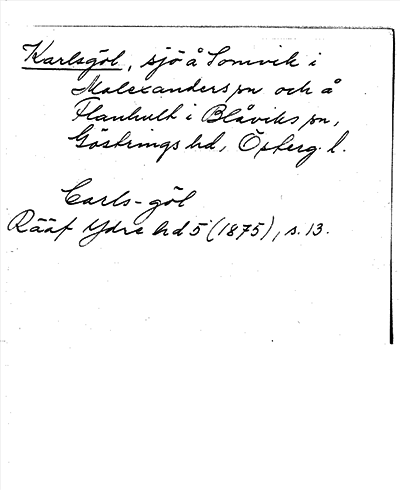 Karlsgöl, sjö å Somvik i
Malexanders sn och å
Flanhult i Blåviks sn,
Göstrings hd, Österg. l.
Carls-göl
Rääf Ydre hd 5 (1875), s. 13.